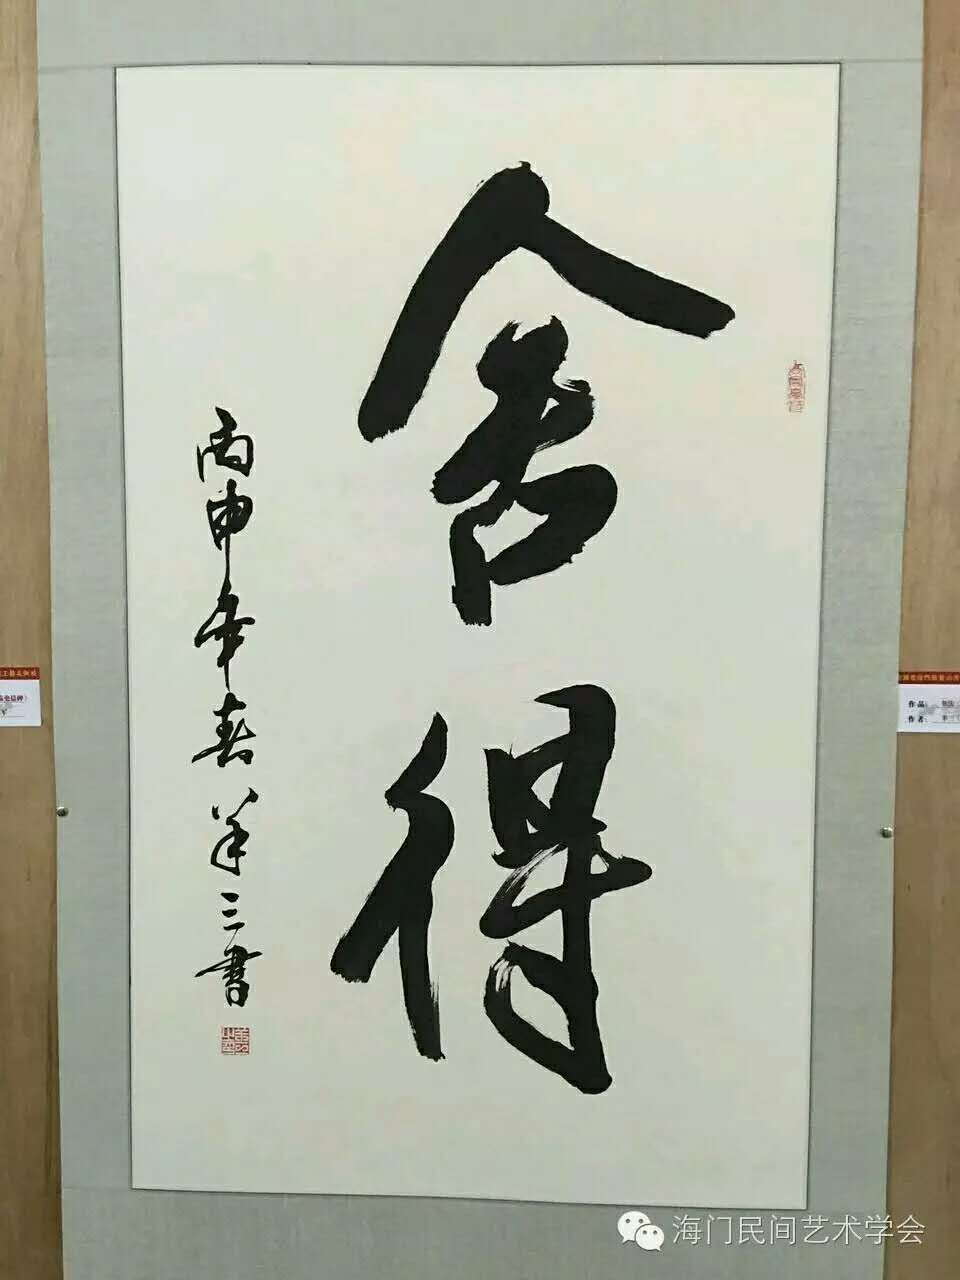 舍得
丙申年春羊三书
作品:
作者:
海门民间艺术学会